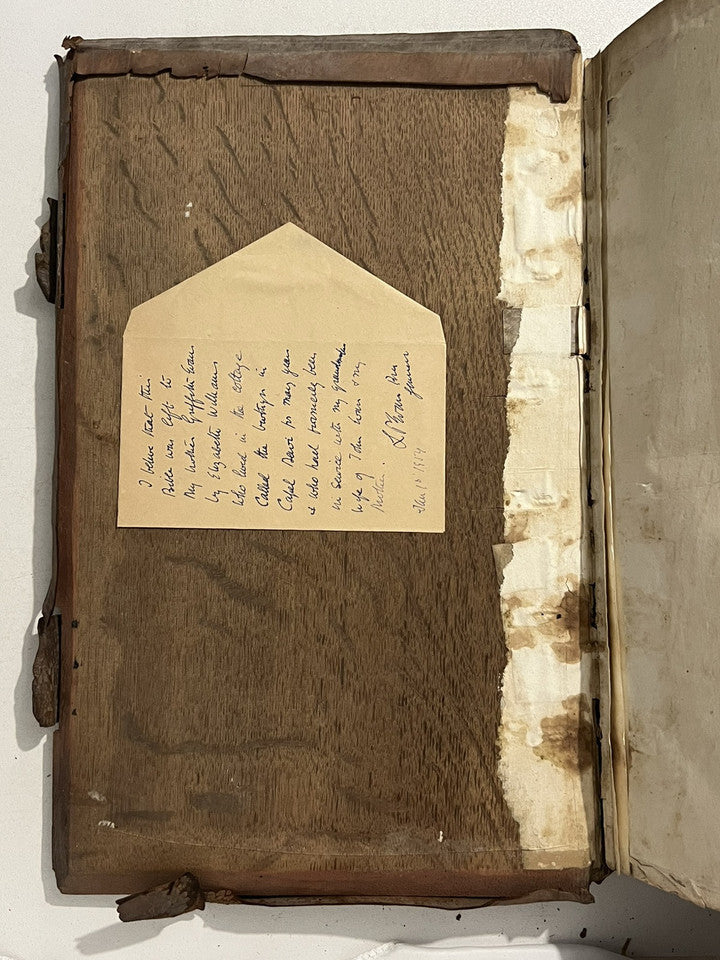 I believe that this
Bible was left to
My Mother Griffith Evans
by Elizabeth Williams
who lived in the cottage
Called the bwthyn in
Capel Dewi for many years
& who had formerly been
in service with my grandmother
wife of John Evans & my
Mother.
Evans
Jan 1st 1954